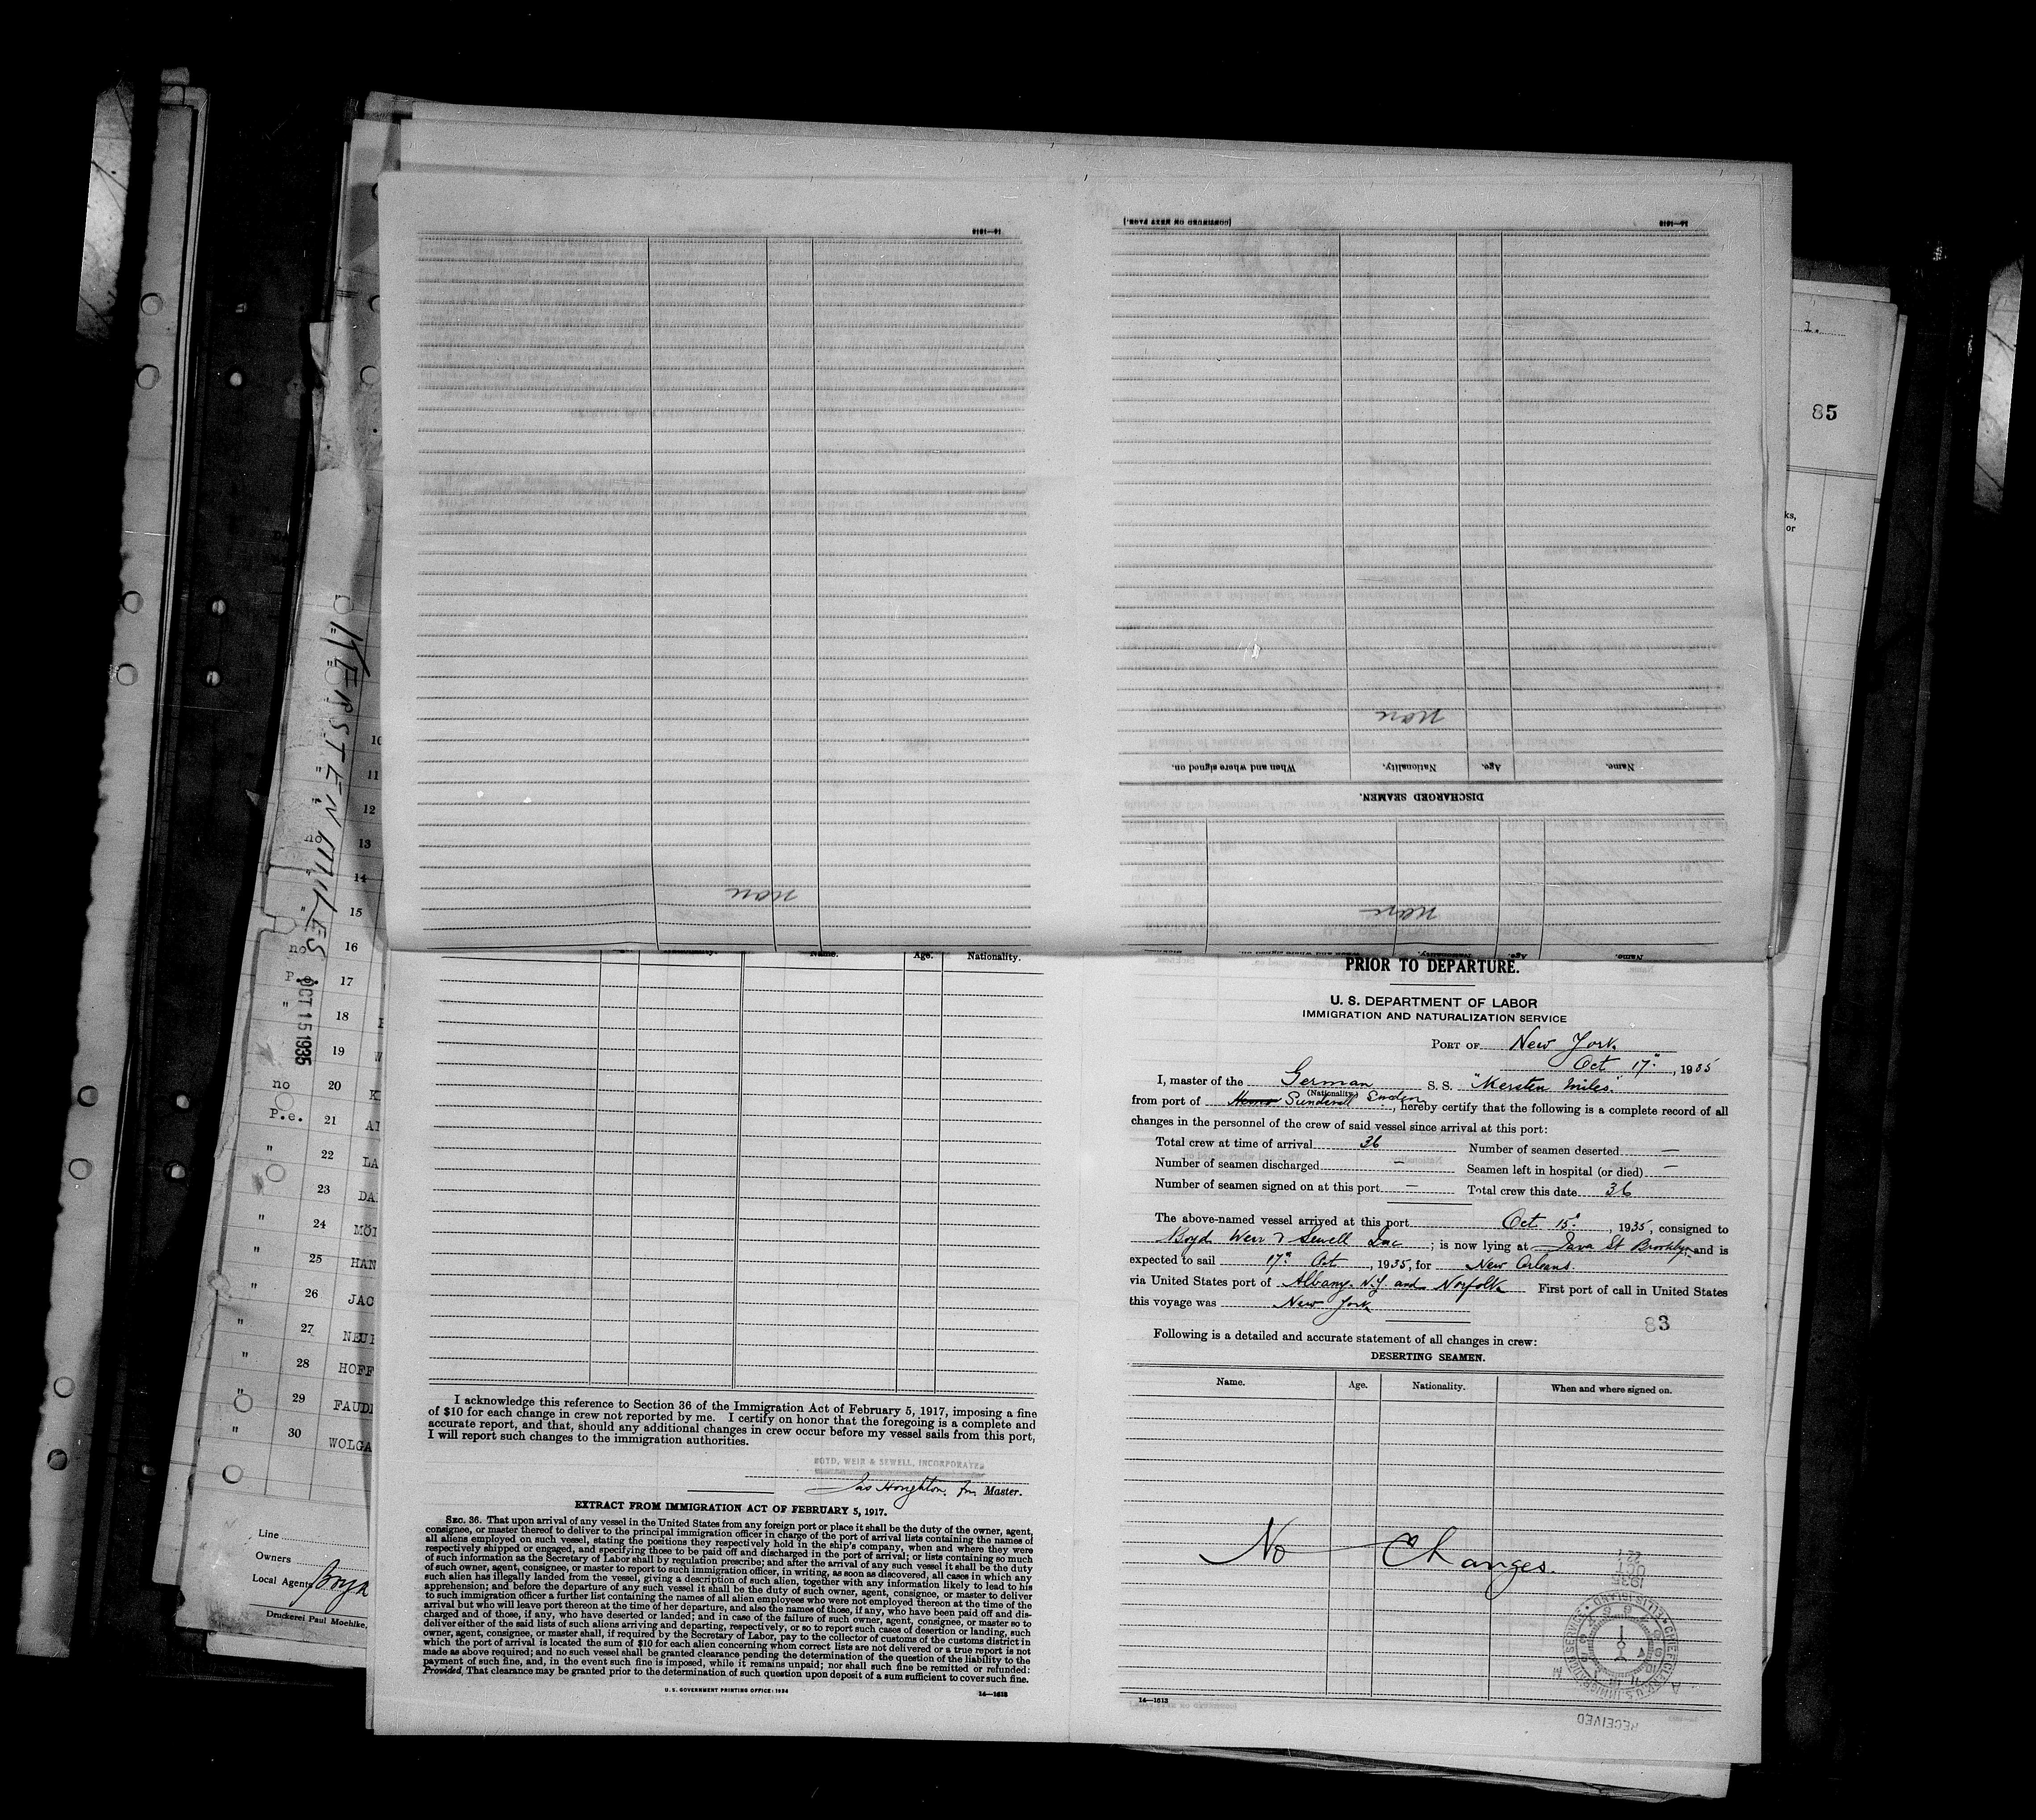 16—1613
[CONTINUED ON NEXT PAGE.]
16—1613
none
When and where signed on.
Nationality.
Age.
Name.
DISCHARGED SEAMEN.
none
none
Name.
Age.
Nationality.
PRIOR TO DEPARTURE.
U. S. DEPARTMENT OF LABOR
IMMIGRATION AND NATURALIZATION SERVICE
PORT OF New York
Oct 17", 1935
I, master of the German S. S. "Kersten Miles"
(Nationality)
from port of Sundsvall Sweden, hereby certify that the following is a complete record of all
changes in the personnel of the crew of said vessel since arrival at this port:
Total crew at time of arrival 36 Number of seamen deserted —
Number of seamen discharged — Seamen left in hospital (or died) —
Number of seamen signed on at this port — Total crew this date 36
The above-named vessel arrived at this port Oct 15", 1935, consigned to
Boyd Weir & Sewell Inc; is now lying at Java St Brooklyn and is
expected to sail 17" Oct, 1935, for New Orleans
via United States port of Albany. N.Y. and Norfolk First port of call in United States
this voyage was New York
83
Following is a detailed and accurate statement of all changes in crew:
DESERTING SEAMEN.
Name. Age. Nationality. When and where signed on.
No Changes.
1935
OCT
ELLIS ISLAND
RECEIVED
16—1613
I acknowledge this reference to Section 36 of the Immigration Act of February 5, 1917, imposing a fine
of $10 for each change in crew not reported by me. I certify on honor that the foregoing is a complete and
accurate report, and that, should any additional changes in crew occur before my vessel sails from this port,
I will report such changes to the immigration authorities.
BOYD, WEIR & SEWELL, INCORPORATED
Jas Houghton. for Master.
EXTRACT FROM IMMIGRATION ACT OF FEBRUARY 5, 1917.
SEC. 36. That upon arrival of any vessel in the United States from any foreign port or place it shall be the duty of the owner, agent,
consignee, or master thereof to deliver to the principal immigration officer in charge of the port of arrival lists containing the names of
all aliens employed on such vessel, stating the positions they respectively hold in the ship's company, when and where they were
respectively shipped or engaged, and specifying those to be paid off and discharged in the port of arrival; or lists containing so much
of such information as the Secretary of Labor shall by regulation prescribe; and after the arrival of any such vessel it shall be the duty
of such owner, agent, consignee, or master to report to such immigration officer, in writing, as soon as discovered, all cases in which any
such alien has illegally landed from the vessel, giving a description of such alien, together with any information likely to lead to his
apprehension; and before the departure of any such vessel it shall be the duty of such owner, agent, consignee, or master to deliver
to such immigration officer a further list containing the names of all alien employees who were not employed thereon at the time of the
arrival but who will leave port thereon at the time of her departure, and also the names of those, if any, who have been paid off and dis-
charged and of those, if any, who have deserted or landed; and in case of the failure of such owner, agent, consignee, or master so to
deliver either of the said lists of such aliens arriving and departing, respectively, or so to report such cases of desertion or landing, such
owner, agent, consignee, or master shall, if required by the Secretary of Labor, pay to the collector of customs of the customs district in
which the port of arrival is located the sum of $10 for each alien concerning whom correct lists are not delivered or a true report is not
made as above required; and no such vessel shall be granted clearance pending the determination of the question of the liability to the
payment of such fine, and, in the event such fine is imposed, while it remains unpaid; nor shall such fine be remitted or refunded:
Provided, That clearance may be granted prior to the determination of such question upon deposit of a sum sufficient to cover such fine.
U. S. GOVERNMENT PRINTING OFFICE: 1934
16—1613
KERSTEN MILES
OCT 15 1935
10
11
12
no 13
" 14
" 15
no 16
P.e. 17
" 18
19
no 20
P.e. 21
" 22 LA
23 DA
" 24 MÖ
" 25 HAN
" 26 JAC
" 27
" 28 HOFF
" 29
" 30 WOLGA
Line
Owners
Local Agents Boyd
Druckerei Paul Moehlke,
1.
85
ks,
or